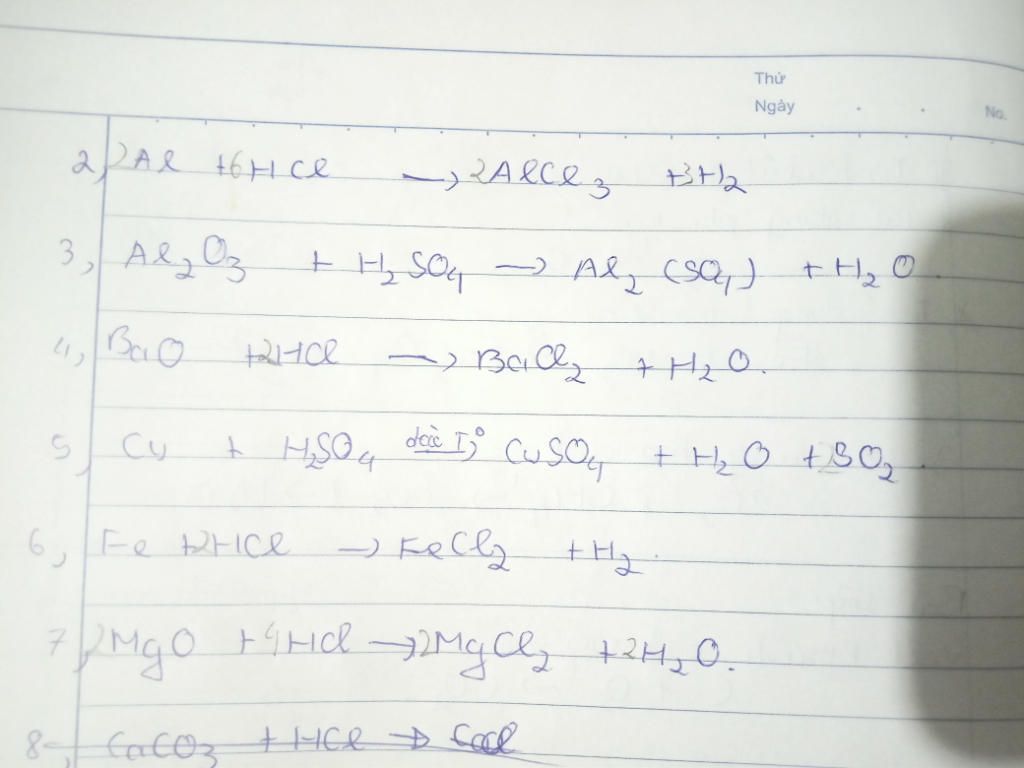 Thứ
Ngày . . No.
2, 2Al +6HCl → 2AlCl3 +3H2
3, Al2O3 + H2SO4 → Al2(SO4) + H2O.
4, BaO +2HCl → BaCl2 + H2O.
5, Cu + H2SO4 CuSO4 + H2O + SO2.
6, Fe +2HCl → FeCl2 + H2.
7, 2MgO +4HCl → 2MgCl2 +2H2O.
8, CaCO3 + HCl →